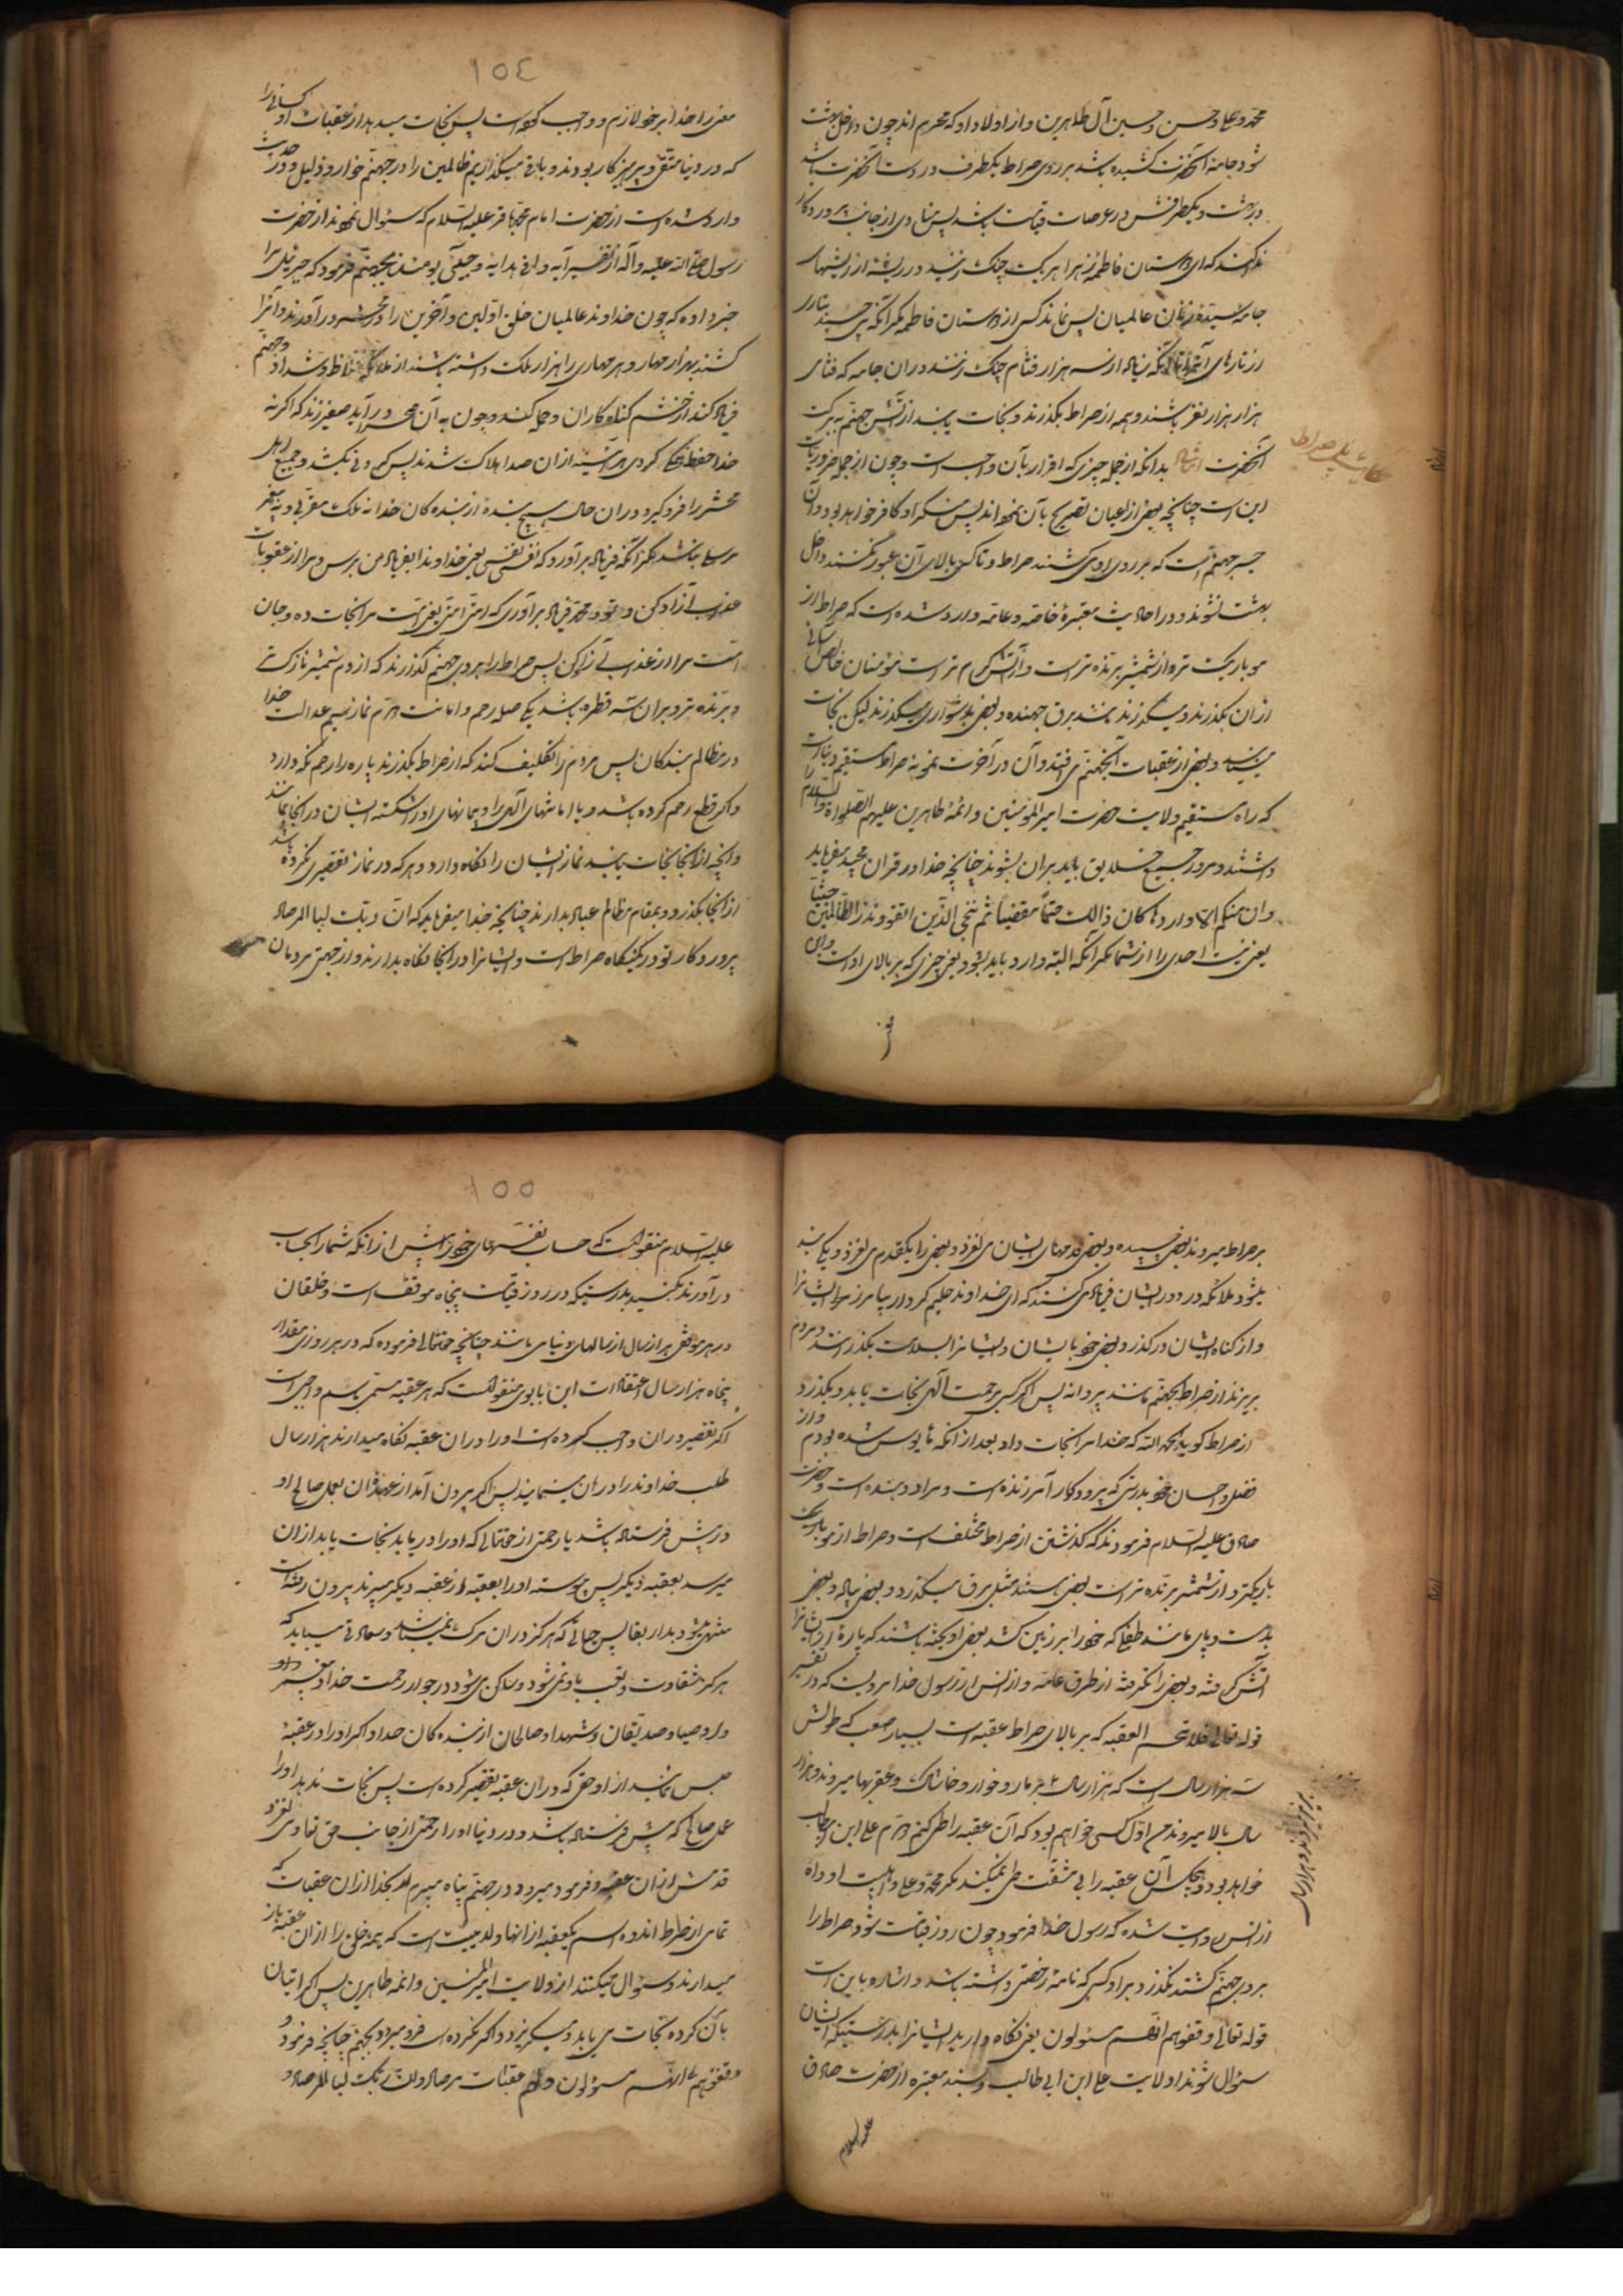 محمد و علی و حسن و حسین آل طاهرین و از اولاد او که محرم اند چون داخل بهشت
شود جامه آنحضرت کشیده باشد بر روی صراط یکطرف در دست آنحضرت باشد
در بهشت و یکطرفش در عرصات قیامت باشد پس منادی از جانب پروردگار
ندا کند که ای دوستان فاطمه زهرا هر یک چنگ زنید در ریشه از ریشهای
جامه سیده زنان عالمیان پس نماند کسی از دوستان فاطمه مکر آنکه بچسبد بتاری
از تارهای آنجامه تا آنکه زیاده از سه هزار فئام چنگ زنند در ان جامه که فئامی
هزار هزار نفر باشند و همه از صراط بگذرند و نجات یابند از آتش جهنم به برکت
آنحضرت بدانکه از جمله چیزی که اقرار بآن واجب است و چون از جمله ضروریات
حکایت پل صراط
دین است چنانچه بعضی از اعیان تصریح بآن نموده اند پس منکر او کافر خواهد بود و آن
جسر جهنم است که بر روی او می کشند صراط و تا کسی بالای آن عبور نکند داخل
بهشت نشوند و در احادیث معتبره خاصه و عامه وارد شده است که صراط از
مو باریک تر و از شمشیر برنده تر است و از آتش گرم تر است مؤمنان خالص بآسانی
از ان بگذرند و میگذرند مانند برق جهنده و بعضی بدشواری میگذرند لیکن نجات
می یابند و بعضی از عقبات آن بجهنم می افتند و آن در آخرت نمونه صراط مستقیم دنیا است
که راه مستقیم ولایت حضرت امیر المؤمنین و ائمه طاهرین علیهم الصلواة والسلام را
داشتند و مرور جمیع خلایق باید بران بشوند چنانچه خدا در قران مجید میفرماید
و ان منکم الا واردها کان ذالک حتما مقضیا ثم ننجی الذین اتقوا و نذر الظالمین جثیا
یعنی نیست احدی را از شما مکر آنکه البته وارد باید بشود یعنی چیزی که بر بالای او است و این
۱۵٤
معنی را خدا بر خود لازم و واجب کرده است پس نجات میدهد از عقبات او کسانی را
که در دنیا متقی و پرهیز کار بودند و باقی میگذاریم ظالمین را در جهنم خوار و ذلیل و در حدیث
وارد شده است از حضرت امام محمد باقر علیه السلام که سئوال نمودند از حضرت
رسول صلی الله علیه و آله از تفسیر آیه وافی هدایه و جیئ یومئذ بجهنم فرمود که جبرئیل مرا
خبر داده که چون خداوند عالمیان خلق اولین و آخرین را در محشر در آورند و آنرا
کشند بهزار مهار و هر مهاری را هزار ملک داشته باشند از ملائکه غلاظ و شداد و جهنم
فریاد کند از خشم گناه کاران و حمله کند و چون به آن محشر در آید صفیر زند که اگر نه
خدا حفظ می کردی هر آینه از ان صدا هلاک شدند پس گردنی بکشد و جمیع اهل
محشر را فرو گیرد در ان حال هیچ بنده از بنده کان خدا نه ملک مقربی و نه پیغمبر
مرسلی نباشد مگر آنکه فریاد برآورد که نفسی نفسی یعنی خداوندا بفریاد من برس و مرا از عقوبات
عذاب آزاد کن و تو محمد فریاد برآوری که امتی امتی یعنی امت مرا نجات ده و جان
امت مرا از عذاب آزاد کن پس صراط را بر روی جهنم گذارند که از دم شمشیر نازک تر
و برنده تر و بران سه قنطره باشد یکی صله رحم و امانت دوم نماز سیم عدالت خدا
در مظالم بندکان پس مردم را تکلیف کند که از صراط بگذرند پاره را رحم نگه دارد
و اگر قطع رحم کرده باشند و یا امانتهای الهی را و پیمانهای او را شکسته ایشان در آنجا بمانند
و آنچه از آنجا نجات یابند نماز ایشان را نگاه دارد و هر که در نماز تقصیری نکرده باشد
از آنجا بگذرد و بمقام مظالم عباد بدارند چنانچه خدا میفرماید که ان ربک لبا المرصاد
پروردگار تو در کمینگاه صراط است و ایشانرا در آنجا نگاه بدارند و از جهتی مردمان
بر صراط میروند بعضی چسپیده و بعضی قدمهای ایشان می لغزد و بعضی را یکقدم می لغزد و یکی بند
بشود ملائکه در دور ایشان فریاد می کنند که ای خداوند حلیم کردار بیامرز ایشانرا
و از گناه ایشان درگذر و بعضی خوبانشان و ایشانرا بسلامت بگذران و مردم
بریزند از صراط بجهنم مانند پروانه پس اگر کسی برحمت الهی نجات یابد و بگذرد
از صراط گوید الحمد لله که خدا مرا نجات داد بعد از آنکه مأیوس شده بودم و از
فضل و احسان خود بدرستی که پروردگار آمرزنده است و مراد دهنده است و حضرت
صادق علیه السلام فرمودند که گذشتن از صراط مختلف است و صراط از مو باریک
باریکتر و از شمشیر برنده تر است بعضی هستند مثل برق میگذرد و بعضی پیاده و بعضی
بدست و پای مانند طفلی که خود را بر زمین کشد بعضی آویخته باشند که پاره از ایشانرا
آتش گرفته و بعضی را نگرفته از طرق عامه و از انس از رسول خدا مرویست که در تفسیر
قوله تعالی فلا اقتحم العقبه که بر بالای صراط عقبه است بسیار صعب که طولش
سه هزار سال است که هزار سال بزیر مار و خوار و خاشاک و عقربها میروند و هزار
سال بالا میروند من اول کسی خواهم بود که آن عقبه را طی کنم دوم علی ابن ابی طالب
خواهد بود و هیچکس آن عقبه را بی مشقت طی نمیکند مگر محمد و علی و اهلبیت او و اه
از انس روایت شده که رسول خدا فرمود چون روز قیامت شود صراط را
بر روی جهنم کشند نگذرد بر او کسی که نامه رخصتی داشته باشد و اشاره باین است
قوله تعالی و قفوهم انهم مسئولون یعنی نگاه دارید ایشانرا بدرستیکه ایشان
سئوال شوند از ولایت علی ابن ابی طالب و بسند معتبره از حضرت صادق
علیه السلام
۱۵۵
علیه السلام منقولست که حساب نفسهای خود را پیش از انکه شما را بحساب
در آورند بکنید بدرستیکه در روز قیامت پنجاه موقف است و خلقان
در هر موقفی هزار سال از سالهای دنیا می مانند چنانچه حقتعالی فرموده که در هر روزی مقدار
پنجاه هزار سال اعتقادات ابن بابوی منقولست که هر عقبه مسمی باسم واجبی است
اگر تقصیر در ان واجب کرده است او را در ان عقبه نگاه میدارند هزار سال
طلب خداوند را در ان مینمایند پس اگر بیرون آمد از عهده ان بعمل صالحی او
در پیش فرستاده باشد یا رحمتی از حقتعالی که او را دریابد نجات یابد از ان
میرسد بعقبه دیگر پس پیوسته او را بعقبه از عقبه دیگر میبرند بیرون رفته است
منتهی میشود بدار بقا پس حیاتی که هرگز در ان مرگ نمیباشد و سعادتی مییابد که
هرگز شقاوت و تعب باو نمی شود و ساکن می شود در جوار رحمت خدا و پیغمبر
و اوصیا و صدیقان و شهدا و صالحان از بنده کان خدا و اگر او را در عقبه
حبس نمایند از او حقی که در ان عقبه تقصیر کرده است پس نجات ندهد او را
عمل صالحی که پیش فرستاده باشد و در دنیا او را رحمتی از جانب حق تعالی می لغزد
قدمش از ان عقبه و فرو میرود در جهنم پناه میبریم بخدا از ان عقبات که
تمامی از صراط اند و اسم یک عقبه از انها ولایت است که همه خلق را از ان عقبه باز
میدارند و سئوال میکنند از ولایت امیر المؤمنین و ائمه طاهرین پس اگر اتیان
بآن کرده نجات می یابد و میگریزد و اگر نکرده است فرو میرود بجهنم چنانچه فرمود
وقفوهم انهم مسئولون و اهم عقبات مرصاد و ان ربک لبا المرصاد و